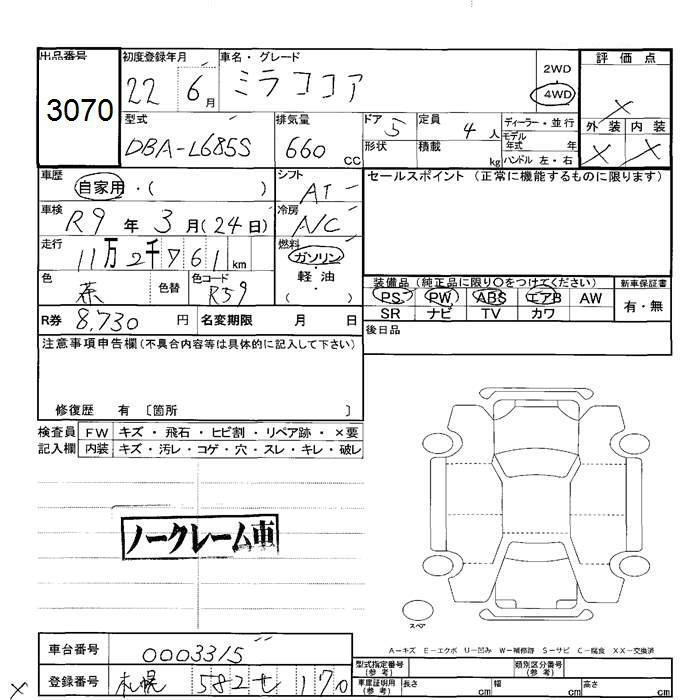 出品番号
3070
初度登録年月
22 6月
車名・グレード
ミラココア
2WD
4WD
評価点
×
外装 内装
× ×
型式
DBA-L685S
排気量
660 cc
ドア 5
形状
定員 4人
積載 kg
ディーラー・並行
モデル年式 年
ハンドル 左・右
車歴
自家用・( )
シフト
AT
セールスポイント (正常に機能するものに限ります)
車検
R9年 3月(24日)
冷房
A/C
走行
11万2千761km
燃料
ガソリン・軽油
( )
色
茶
色替
色コード
R59
装備品 (純正品に限り○をつけてください)
PS PW ABS エアB AW
SR ナビ TV カワ
新車保証書
有・無
R券 8,730円
名変期限 月 日
後日品
注意事項申告欄(不具合内容等は具体的に記入して下さい)
修復歴 有 〔箇所 〕
検査員記入欄
FW キズ・飛石・ヒビ割・リペア跡・×要
内装 キズ・汚レ・コゲ・穴・スレ・キレ・破レ
ノークレーム車
スペア
A-キズ E-エクボ U-凹み W-補修跡 S-サビ C-腐食 XX-交換済
車台番号
0003315
登録番号
札幌 582 セ 170
型式指定番号(参考)
類別区分番号(参考)
車庫証明用(参考)
長さ cm
幅 cm
高さ cm
×